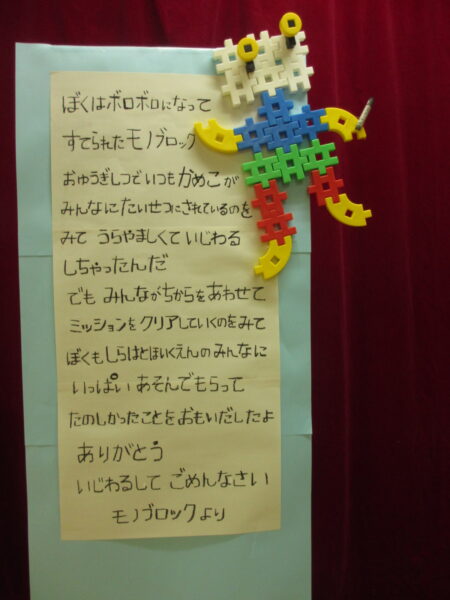 ぼくはボロボロになって
すてられたモノブロック
おゆうぎしつでいつもかめこが
みんなにたいせつにされているのを
みて うらやましくていじわる
しちゃったんだ
でも みんながちからをあわせて
ミッションをクリアしていくのをみて
ぼくもしらはとほいくえんのみんなに
いっぱい あそんでもらって
たのしかったことをおもいだしたよ
ありがとう
いじわるして ごめんなさい
モノブロックより